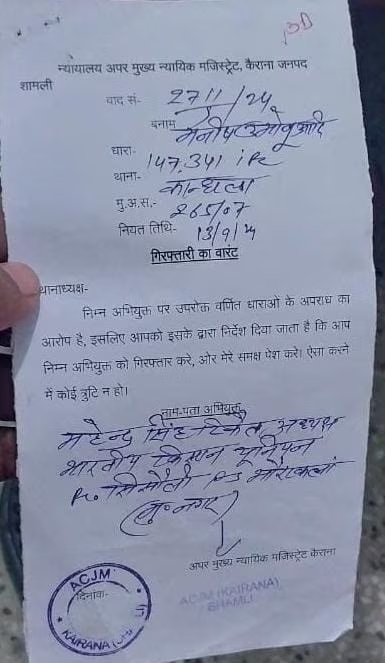 न्यायालय अपर मुख्य न्यायिक मजिस्ट्रेट, कैराना जनपद
शामली
वाद सं- 2711/24
बनाम मनीष उ० मोनू आदि
धारा- 147, 341 IPC
थाना- कान्धला
मु.अ.स.- 265/07
नियत तिथि- 13/9/24
गिरफ्तारी का वारंट
थानाध्यक्ष-
निम्न अभियुक्त पर उपरोक्त वर्णित धाराओ के अपराध का
आरोप है, इसलिए आपको इसके द्वारा निर्देश दिया जाता है कि आप
निम्न अभियुक्त को गिरफ्तार करे, ओर मेरे समक्ष पेश करे। ऐसा करने
में कोई त्रुटि न हो।
नाम-पता अभियुक्त
महेन्द्र सिंह टिकैत अध्यक्ष
भारतीय यूनियन
सिसौली PS भौराकलां
(मु० नगर)
अपर मुख्य न्यायिक मजिस्ट्रेट कैराना
ACJM (KAIRANA)
SHAMLI
ACJM
दिनांक-
KAIRANA